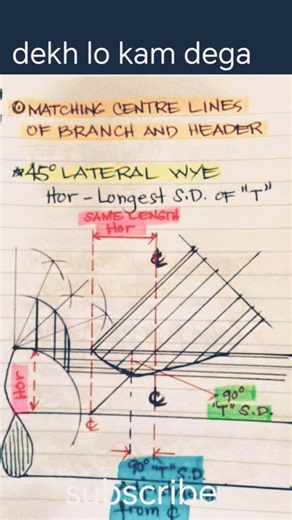 dekh lo kam dega
MATCHING CENTRE LINES
OF BRANCH AND HEADER
*45° LATERAL WYE
Hor - Longest S.D. OF "T"
SAME LENGTH
Hor
℄
Hor
℄
℄
90°
"T" S.D.
90° "T" S.D.
subscribe
from ℄